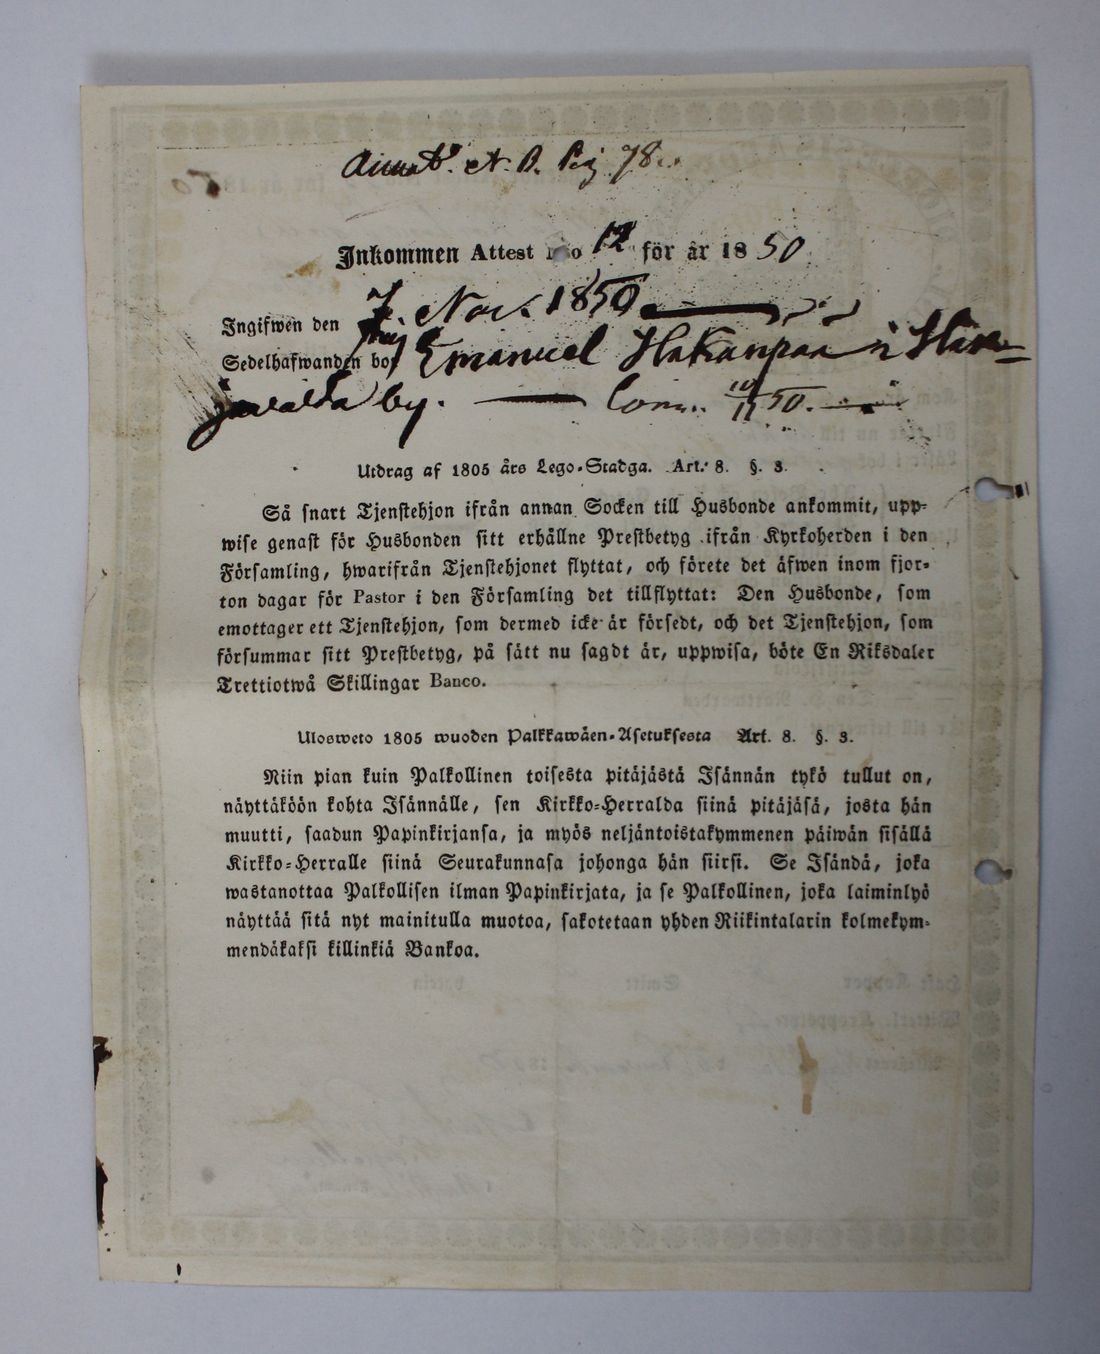 Inkommen Attest No 12 för år 1850
Ingifwen den 7 Nov. 1850
Sedelhafwanden bor Emanuel Hakanpaa i
by. 10/11 50.
Utdrag af 1805 års Lego-Stadga. Art. 8. §. 3.
Så snart Tjenstehjon ifrån annan Socken till Husbonde ankommit, upp-
wise genast för Husbonden sitt erhållne Prestbetyg ifrån Kyrkoherden i den
Församling, hwarifrån Tjenstehjonet flyttat, och förete det äfwen inom fjor-
ton dagar för Pastor i den Församling det tillflyttat: Den Husbonde, som
emottager ett Tjenstehjon, som dermed icke är försedt, och det Tjenstehjon, som
försummar sitt Prestbetyg, på sätt nu sagdt är, uppwisa, böte En Riksdaler
Trettiotwå Skillingar Banco.
Ulosweto 1805 wuoden Palkkawäen-Asetuksesta Art. 8. §. 3.
Niin pian kuin Palkollinen toisesta pitäjästä Isännän tykö tullut on,
näyttäköön kohta Isännälle, sen Kirkko-Herralda siinä pitäjäsä, josta hän
muutti, saadun Papinkirjansa, ja myös neljäntoistakymmenen päiwän sisällä
Kirkko-Herralle siinä Seurakunnasa johonga hän siirsi. Se Isändä, joka
wastanottaa Palkollisen ilman Papinkirjata, ja se Palkollinen, joka laiminlyö
näyttää sitä nyt mainitulla muotoa, sakotetaan yhden Riikintalarin kolmekym-
mendäkaksi killinkiä Bankoa.